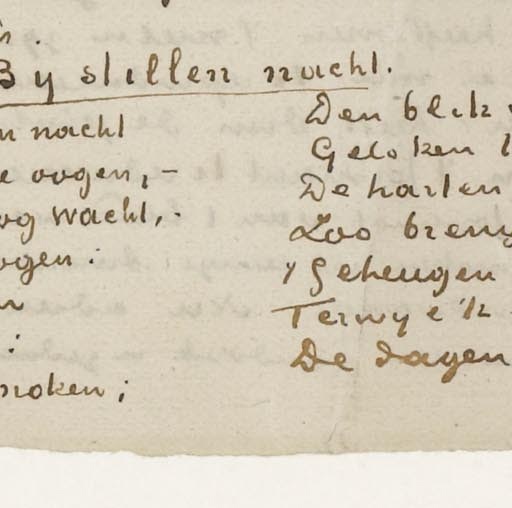 By stillen nacht.
n nacht
e oogen,-
og wacht,
ogen:
n
broken;
Den blik
Geloken
De harten
Zoo breng
'Geheugen
Terwyl ik
De dagen